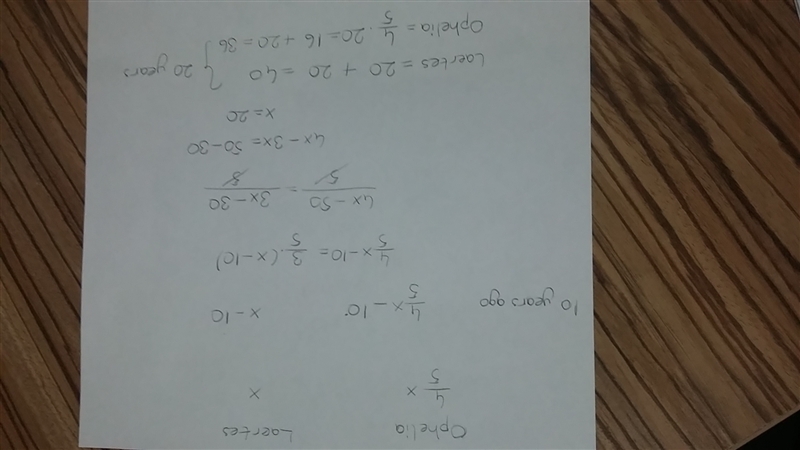 Ophelia Laertes
4/5 x x
10 years ago 4/5 x - 10 x - 10
4/5 x - 10 = 3/5 · (x - 10)
4x - 50 / 5 = 3x - 30 / 5
4x - 3x = 50 - 30
x = 20
Laertes = 20 + 20 = 40 } 20 years
Ophelia = 4/5 · 20 = 16 + 20 = 36